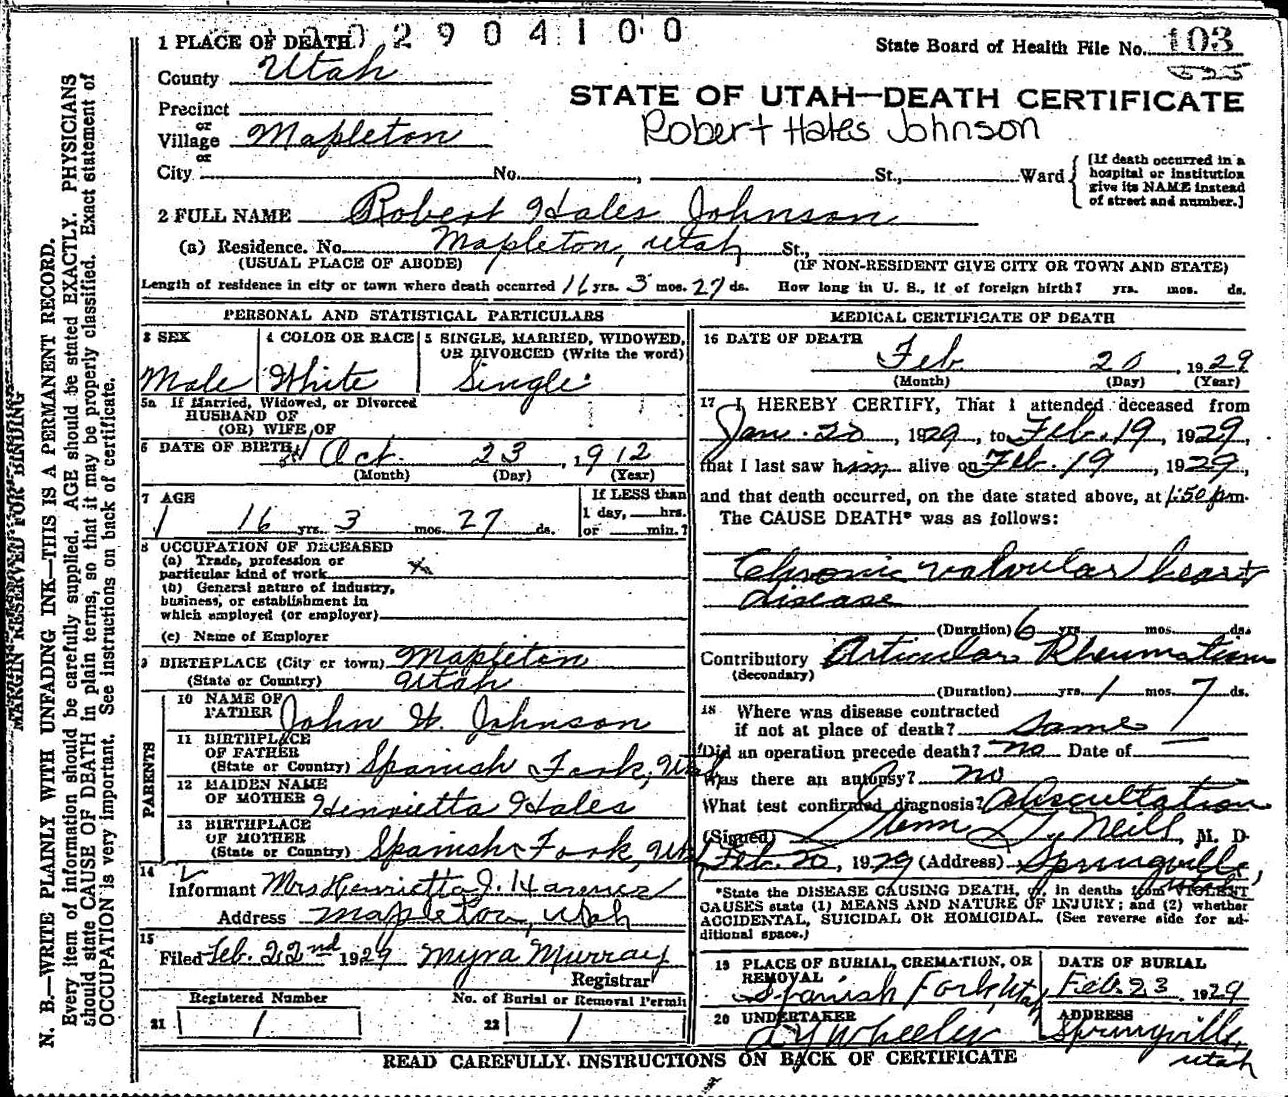 2904100
1 PLACE OF DEATH
State Board of Health File No. 103
525
County Utah
STATE OF UTAH—DEATH CERTIFICATE
Precinct
or
Village Mapleton
Robert Hales Johnson
or
City No. , St., Ward
[If death occurred in a hospital or institution give its NAME instead of street and number.]
2 FULL NAME Robert Hales Johnson
(a) Residence. No. Mapleton, Utah St.,
(USUAL PLACE OF ABODE) (IF NON-RESIDENT GIVE CITY OR TOWN AND STATE)
Length of residence in city or town where death occurred 16 yrs. 3 mos. 27 ds. How long in U. S., if of foreign birth? yrs. mos. ds.
PERSONAL AND STATISTICAL PARTICULARS
3 SEX 4 COLOR OR RACE 5 SINGLE, MARRIED, WIDOWED, OR DIVORCED (Write the word)
Male White Single
5a If Married, Widowed, or Divorced
HUSBAND OF
(OR) WIFE OF
6 DATE OF BIRTH Oct 23, 1912
(Month) (Day) (Year)
7 AGE
If LESS than 1 day, hrs. or min.?
16 yrs. 3 mos. 27 ds.
8 OCCUPATION OF DECEASED
(a) Trade, profession or
particular kind of work x
(b) General nature of industry,
business, or establishment in
which employed (or employer)
(c) Name of Employer
9 BIRTHPLACE (City or town) Mapleton
(State or Country) Utah
PARENTS
10 NAME OF FATHER John H. Johnson
11 BIRTHPLACE OF FATHER
(State or Country) Spanish Fork, Utah
12 MAIDEN NAME OF MOTHER Henrietta Hales
13 BIRTHPLACE OF MOTHER
(State or Country) Spanish Fork, Utah
14
Informant Mrs Henrietta J. Harmer
Address Mapleton, Utah
15
Filed Feb. 22nd 1929 Myra Murray
Registrar
Registered Number No. of Burial or Removal Permit
21 1 22 1
MEDICAL CERTIFICATE OF DEATH
16 DATE OF DEATH
Feb 20, 1929
(Month) (Day) (Year)
17 I HEREBY CERTIFY, That I attended deceased from
Jan. 20, 1929, to Feb. 19, 1929,
that I last saw him alive on Feb. 19, 1929,
and that death occurred, on the date stated above, at 1:50 pm.
The CAUSE DEATH* was as follows:
Chronic valvular heart
disease
(Duration) 6 yrs. mos. ds.
Contributory Articular Rheumatism
(Secondary)
(Duration) yrs. 1 mos. 7 ds.
18 Where was disease contracted
if not at place of death? Same
Did an operation precede death? no Date of
Was there an autopsy? no
What test confirmed diagnosis? Auscultation
(Signed) Glenn G. Neill, M. D.
Feb. 20, 1929 (Address) Springville, Utah
*State the DISEASE CAUSING DEATH, or, in deaths from VIOLENT
CAUSES state (1) MEANS AND NATURE OF INJURY; and (2) whether
ACCIDENTAL, SUICIDAL OR HOMICIDAL. (See reverse side for ad-
ditional space.)
19 PLACE OF BURIAL, CREMATION, OR REMOVAL DATE OF BURIAL
Spanish Fork Utah Feb. 23, 1929
20 UNDERTAKER ADDRESS
A Y Wheeler Springville, Utah
READ CAREFULLY INSTRUCTIONS ON BACK OF CERTIFICATE
MARGIN RESERVED FOR BINDING
N. B.—WRITE PLAINLY WITH UNFADING INK—THIS IS A PERMANENT RECORD.
Every item of information should be carefully supplied. AGE should be stated EXACTLY. PHYSICIANS
should state CAUSE OF DEATH in plain terms, so that it may be properly classified. Exact statement of
OCCUPATION is very important. See instructions on back of certificate.